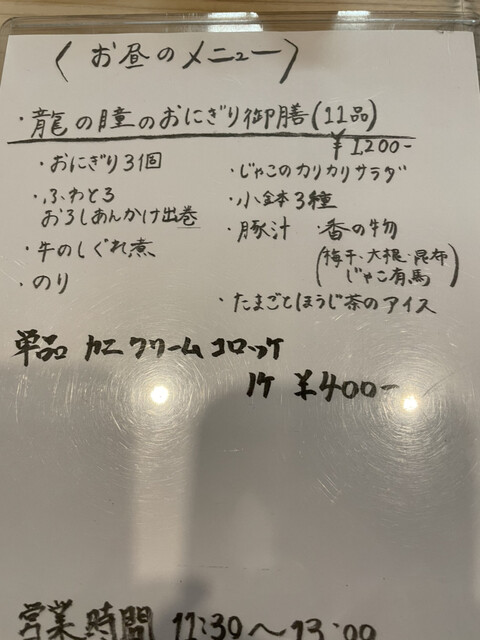 〈お昼のメニュー〉
・龍の瞳のおにぎり御膳(11品)
¥1200-
・おにぎり3個
・ふわとろ
おろしあんかけ出巻
・牛のしぐれ煮
・のり
・じゃこのカリカリサラダ
・小鉢3種
・豚汁 ・香の物
(梅干・大根・昆布
じゃこ有馬)
・たまごとほうじ茶のアイス
単品 カニクリームコロッケ
1ケ ¥400-
営業時間 11:30〜13:00